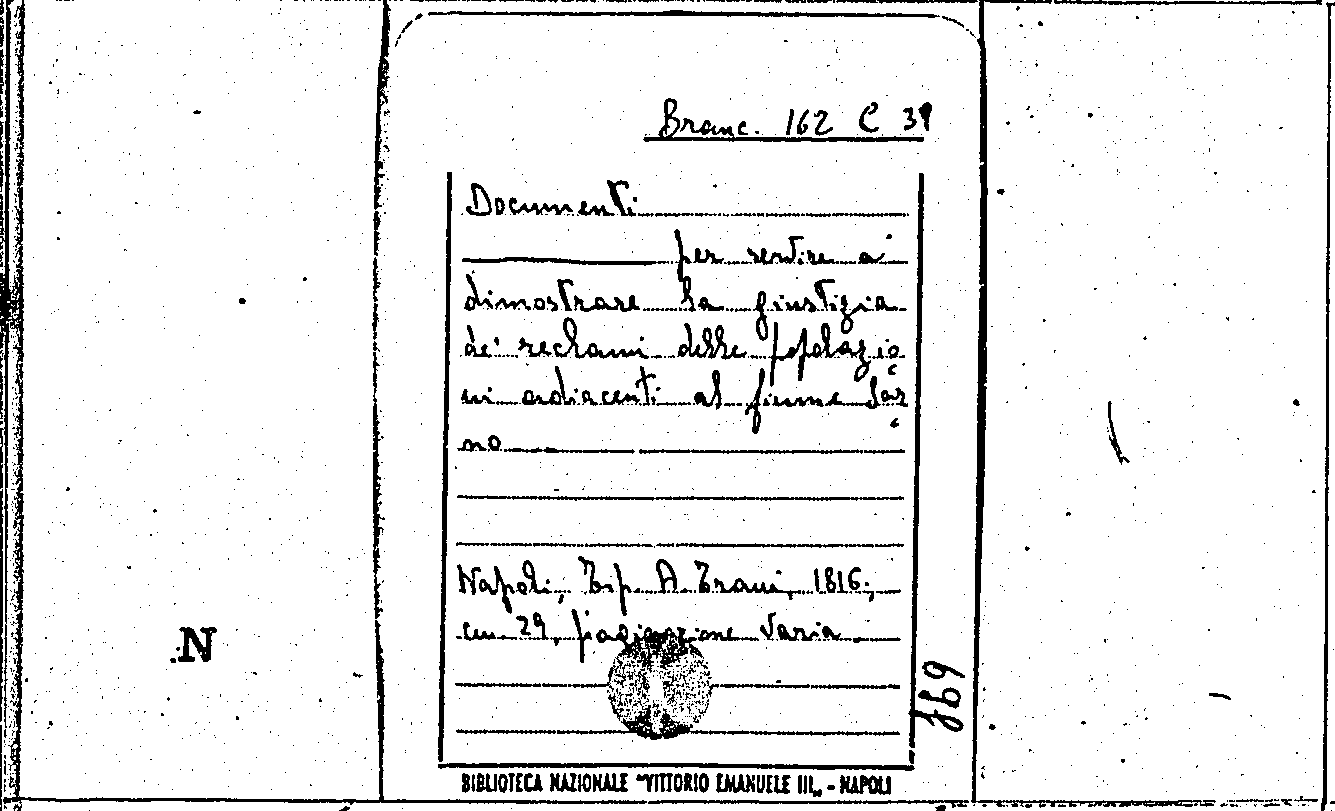 Branc. 162 C 31
Documenti
per servire a
dimostrare la giustizia
de' reclami delle popolazio
ni adiacenti al fiume Sar
no
Napoli, Tip. A. Trani, 1816;
cm. 29, paginazione varia.
N
BIBLIOTECA NAZIONALE "VITTORIO EMANUELE III„ - NAPOLI